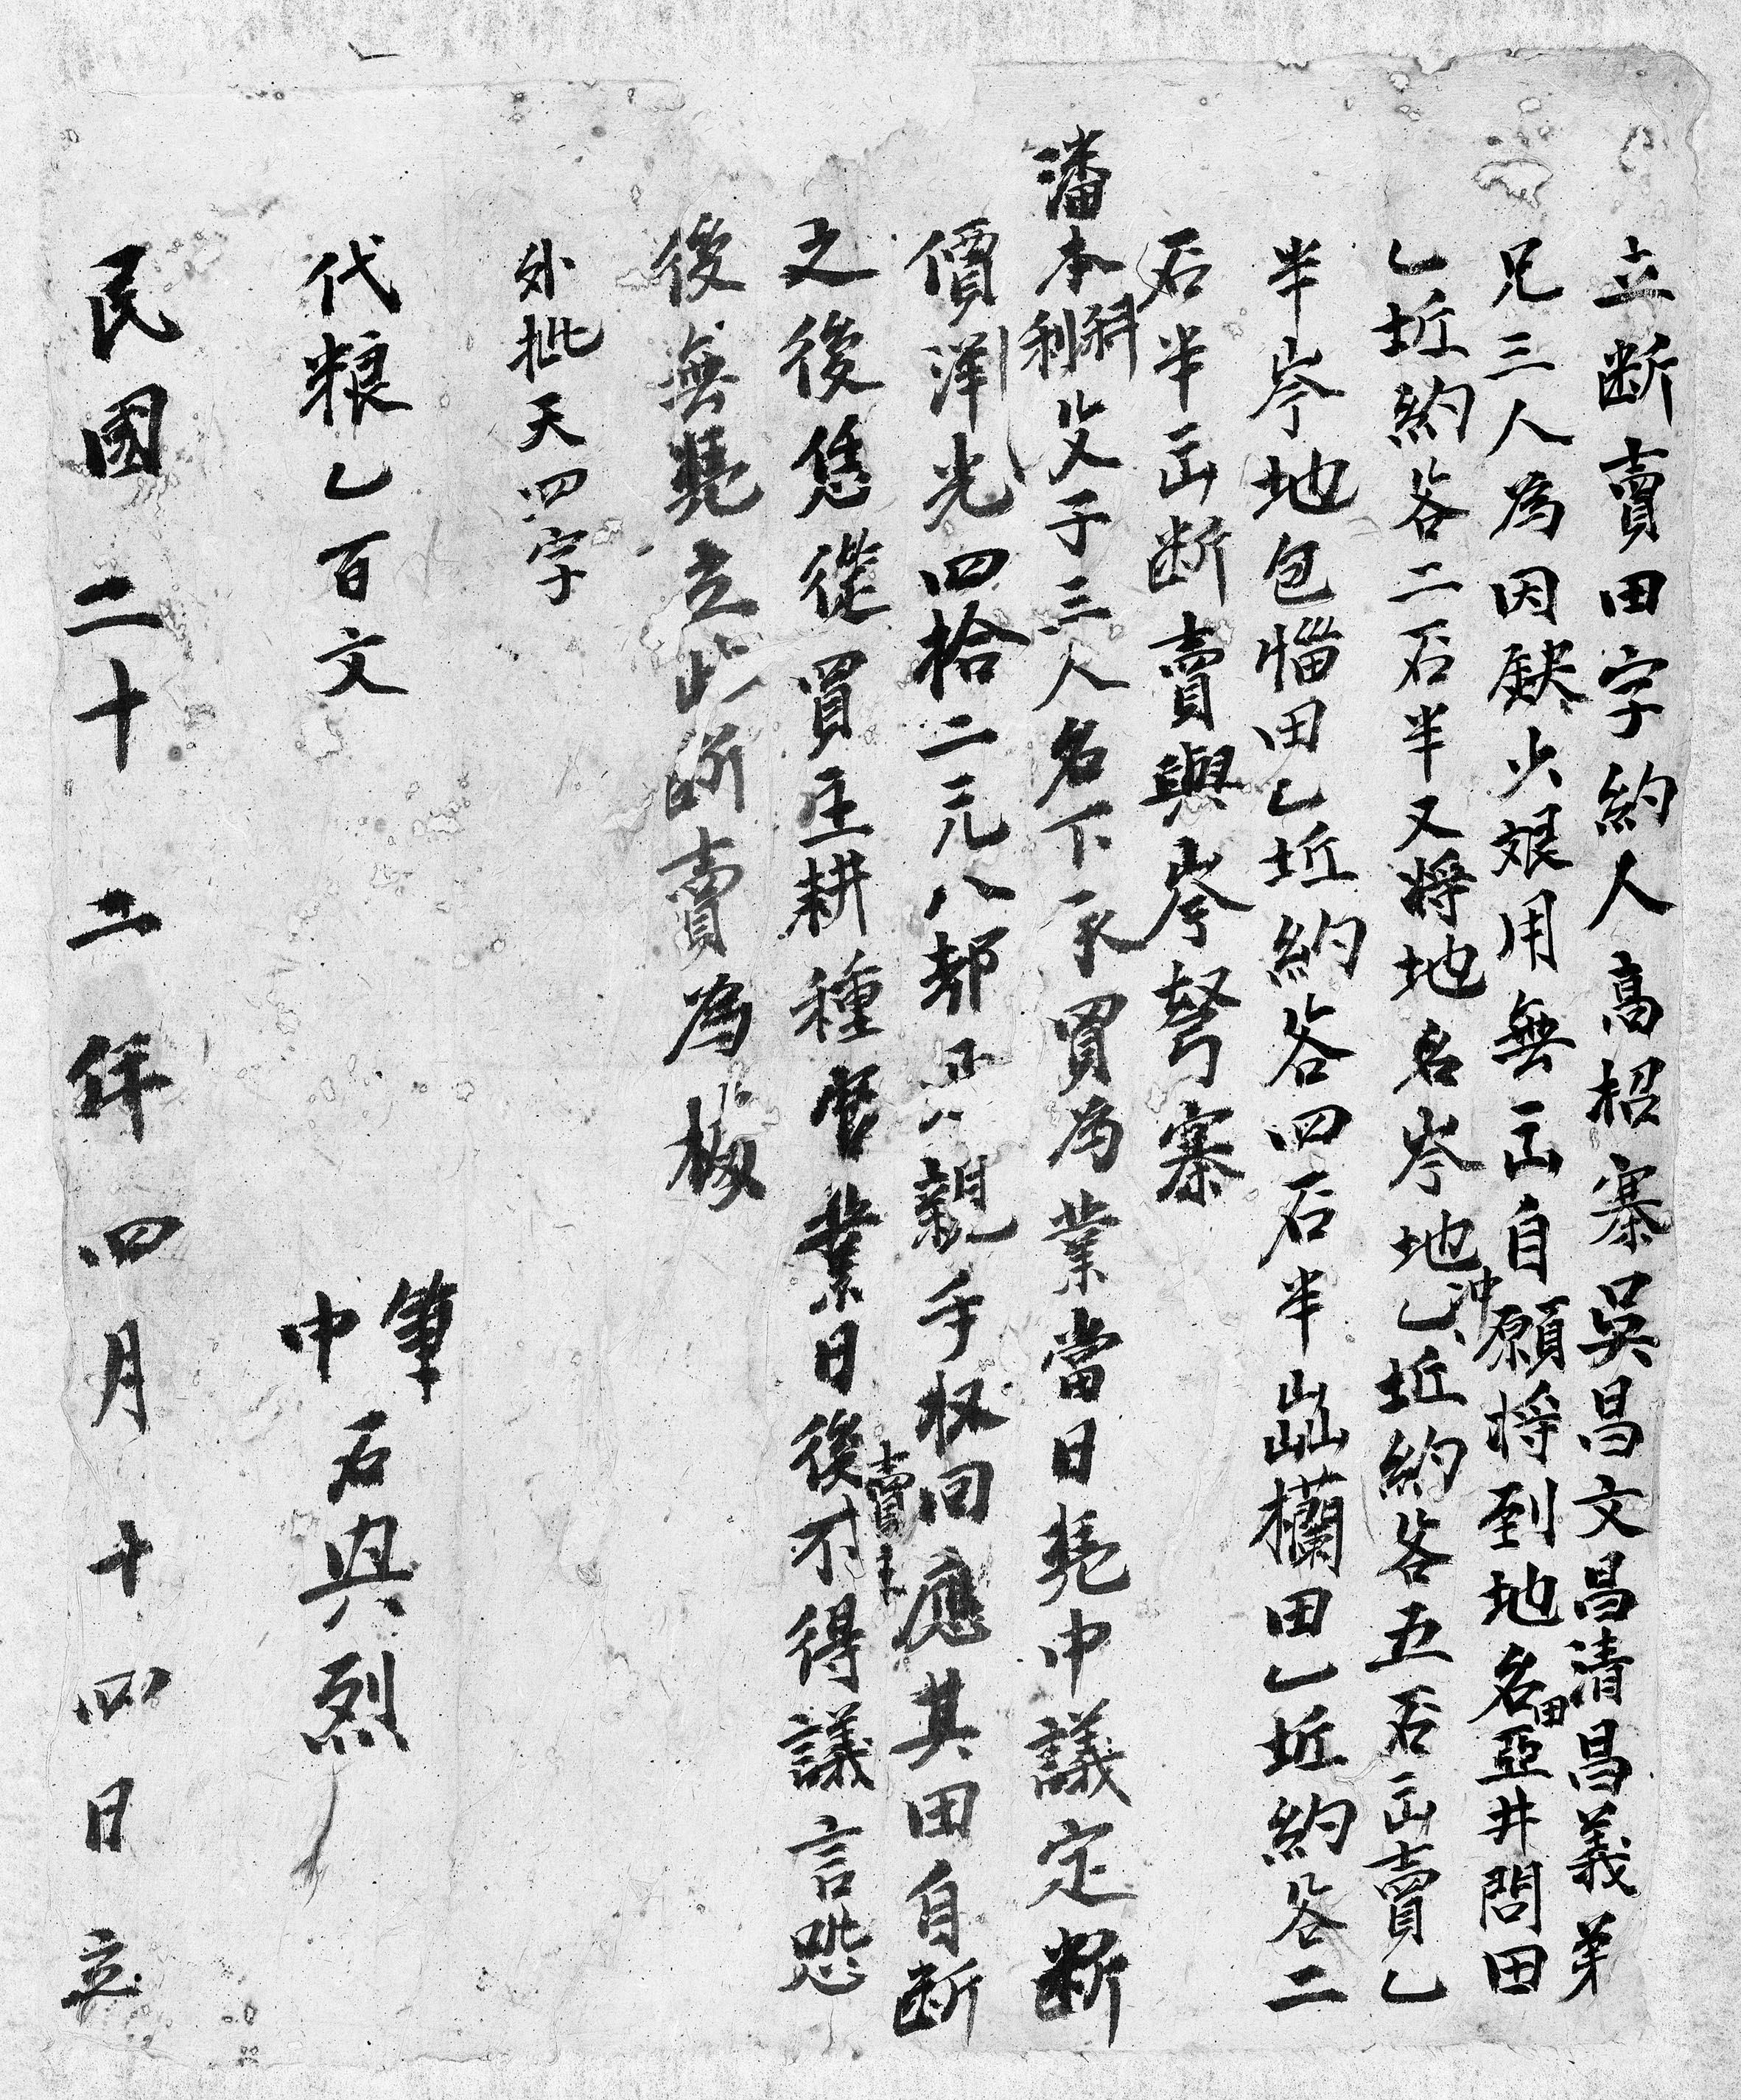 立断賣田字約人高袑寨吳昌文昌清昌義弟
兄三人為因缺少銀用無出自願将到地名田亞井問田
乙坵約各二石半又将地名岑地冲乙坵約各五石出賣乙
半岑地包惱田乙坵約各四石半出欄田乙坵約各二
石半出断賣與岑弩寨
潘本利科父子三人名下承買為業當日凴中議定断
價洋光四拾二元八親手收回應其田自断
之後恁從買主耕種管業日後賣主不得議言恐
後無凴立此断賣為據
外批天四字
代粮乙百文
筆中 石興烈
民國二十二年四月十四日立